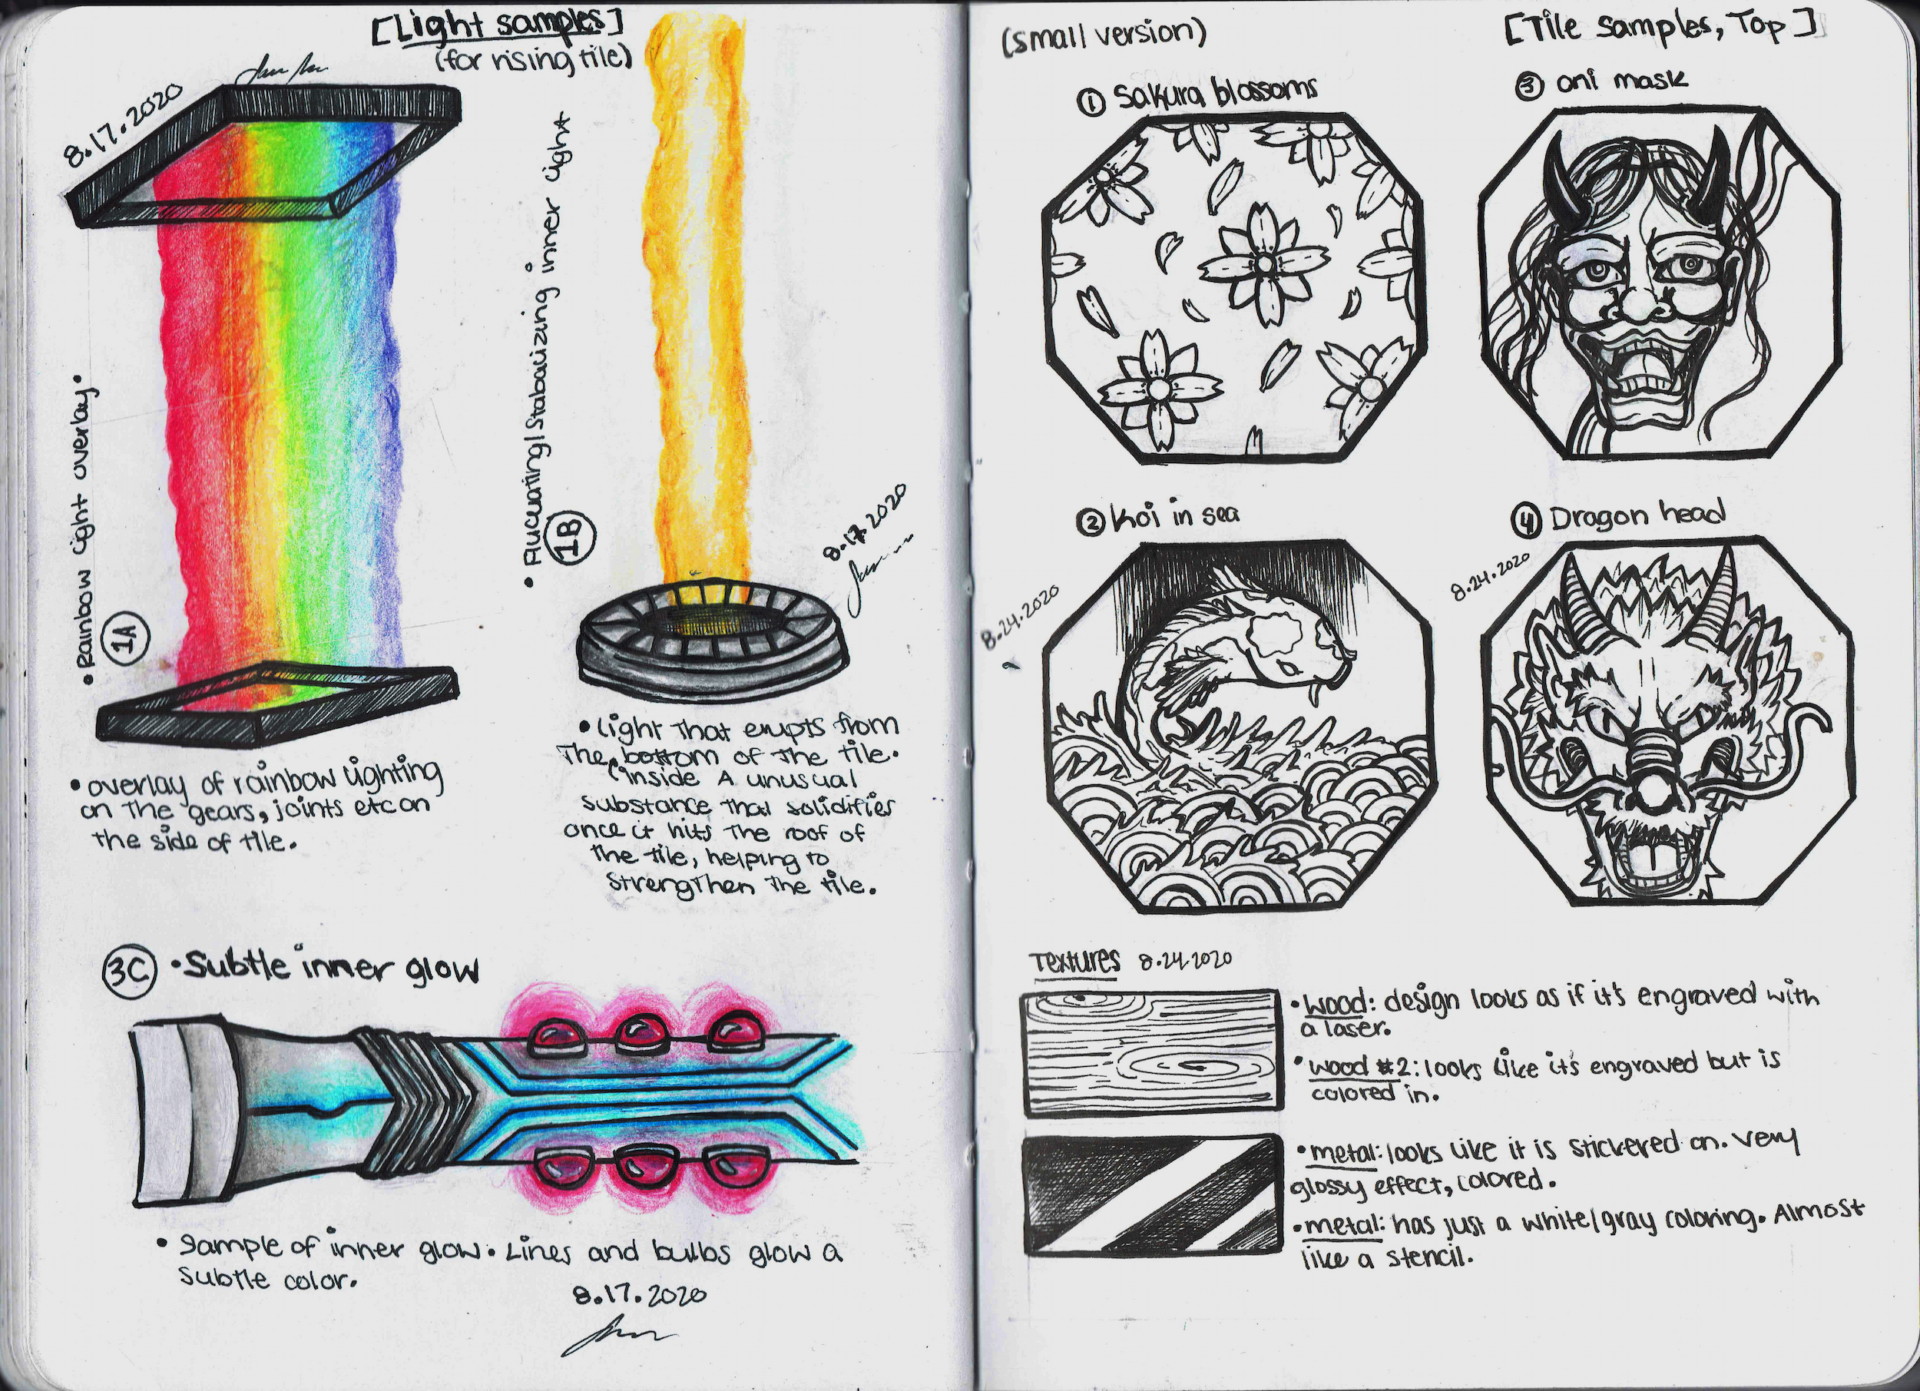 [Light samples]
(for rising tile)
8.17.2020
• Rainbow light overlay •
1A
• overlay of rainbow lighting
on the gears, joints etc on
the side of tile.
inner light
1B
8.17.2020
• light that erupts from
the bottom of the tile.
(inside A unusual
substance that solidifies
once it hits the roof of
the tile, helping to
strengthen the tile.
3C • Subtle inner glow
• Sample of inner glow. Lines and bulbs glow a
subtle color.
8.17.2020
(small version)
[Tile samples, Top]
1 Sakura blossoms
3 oni mask
2 Koi in sea
8.24.2020
4 Dragon head
8.24.2020
Textures 8.24.2020
• wood: design looks as if it's engraved with
a laser.
• wood #2: looks like it's engraved but is
colored in.
• metal: looks like it is stickered on. very
glossy effect, colored.
• metal: has just a white/gray coloring. Almost
like a stencil.